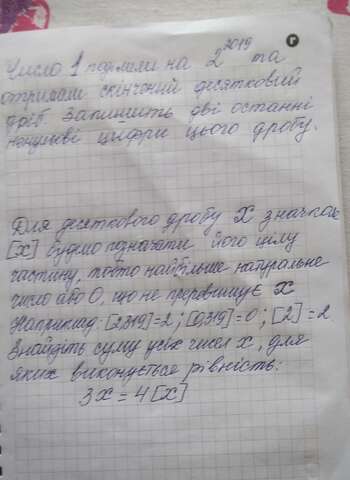 Число 1 поділили на 2^2019 та
отримали скінчений десятковий
дріб запишіть дві останні
ненулеві цифри цього дробу.
Для десяткового дробу X значком
[x] будемо позначати його цілу
частину, тобто найбільше натуральне
число або 0, що не перевищує X
Наприклад: [2,319]=2; [0,319]=0; [2]=2
Знайдіть суму усіх чисел x, для
яких виконується рівність:
3x=4[x]